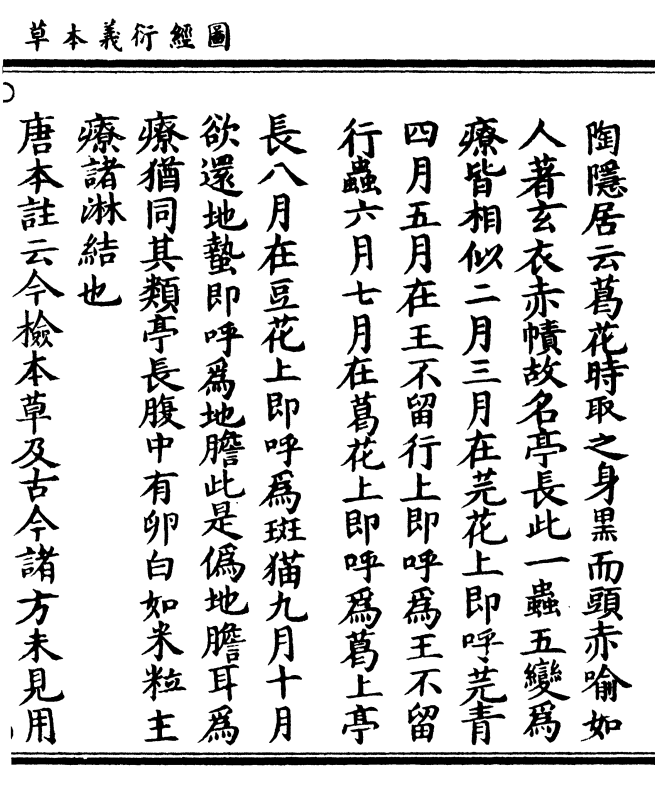 圖經衍義本草
陶隱居云葛花時取之身黒而頭赤喻如
人著玄衣赤幘故名亭長此一蟲五變為
療皆相似二月三月在芫花上即呼芫青
四月五月在王不留行上即呼為王不留
行蟲六月七月在葛花上即呼為葛上亭
長八月在豆花上即呼為斑猫九月十月
欲還地蟄即呼為地膽此是偽地膽耳為
療猶同其類亭長腹中有卵白如米粒主
療諸淋結也
唐本註云今檢本草及古今諸方未見用